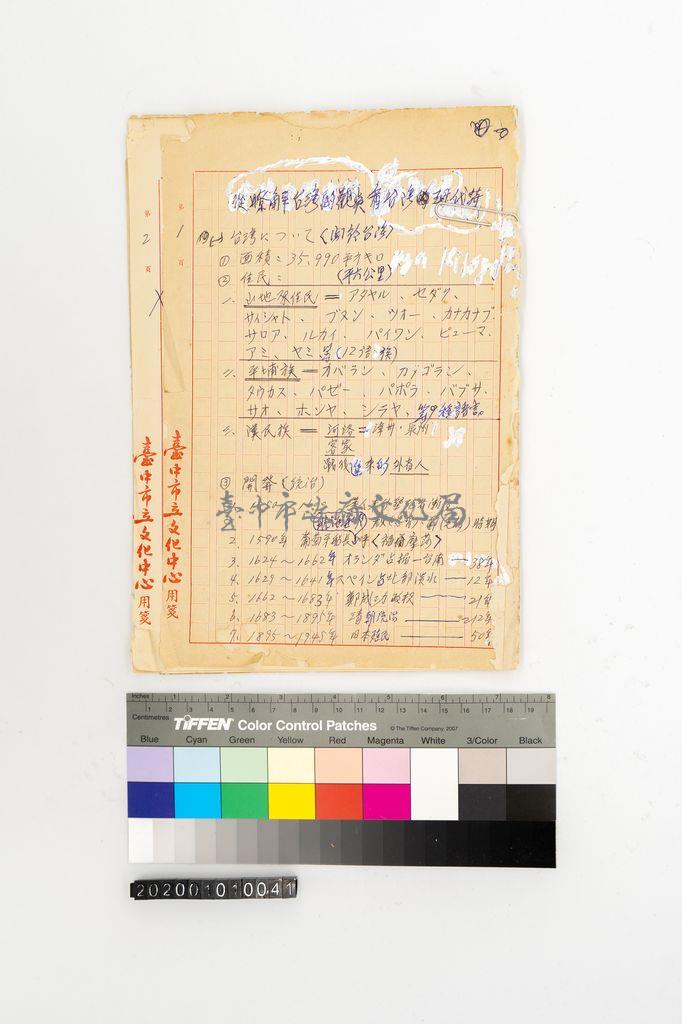 從瞭解台灣的觀點看台灣的現代詩
台湾について(関於台湾)
① 面積:35,990平方キロ
(平方公里)
② 住民:
一、山地原住民=アタヤル、セダク、
サイシャト、ブヌン、ツオー、カナカナブ
サロア、ルカイ、パイワン、ピューマ、
アミ、ヤミ等(12語族)
二、平埔族=カバラン、
タウカス、パゼー、パポラ、バブサ、
サオ、ホンヤ、シラヤ、等9種語言。
三、漢民族=河洛=漳州・泉州
客家
戦後進来的外省人
③ 開発(統治)
2. 1590年 葡萄牙船長
3. 1624~1662年オランダ占拠一台南—38年
4. 1629~1641年スペイン占北部淡水—12年
5. 1662~1683年 鄭成功政権—21年
6. 1683~1895年 清朝統治—212年
7. 1895~1945年 日本殖民—50年
第1頁
第2頁
臺中市立文化中心用箋
臺中市立文化中心用箋
臺中市政府文化局
Inches 1 2 3 4 5 6 7 8
Centimetres 1 2 3 4 5 6 7 8 9 10 11 12 13 14 15 16 17 18 19
TIFFEN Color Control Patches © The Tiffen Company, 2007
Blue Cyan Green Yellow Red Magenta White 3/Color Black
20200101 0041